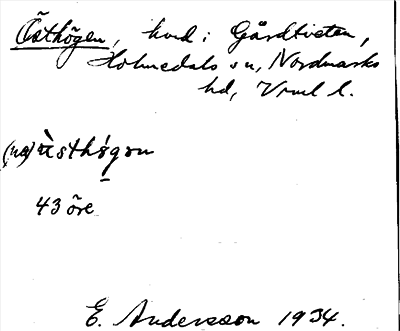 Östhögen, hmd i Gårdtveten,
Holmedals sn, Nordmarks
hd, Vrml l.
(na) ùsthøgən
43 öre
E. Andersson 1934.